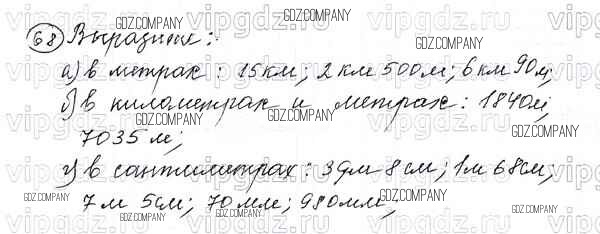 68 Выразите:
а) в метрах: 15 км; 2 км 500 м; 6 км 90 м;
б) в километрах и метрах: 1840 м;
7035 м;
г) в сантиметрах: 3 дм 8 см; 1 м 68 см;
7 м 5 см; 70 мм; 980 мм;
GDZ.COMPANY
vipgdz.ru